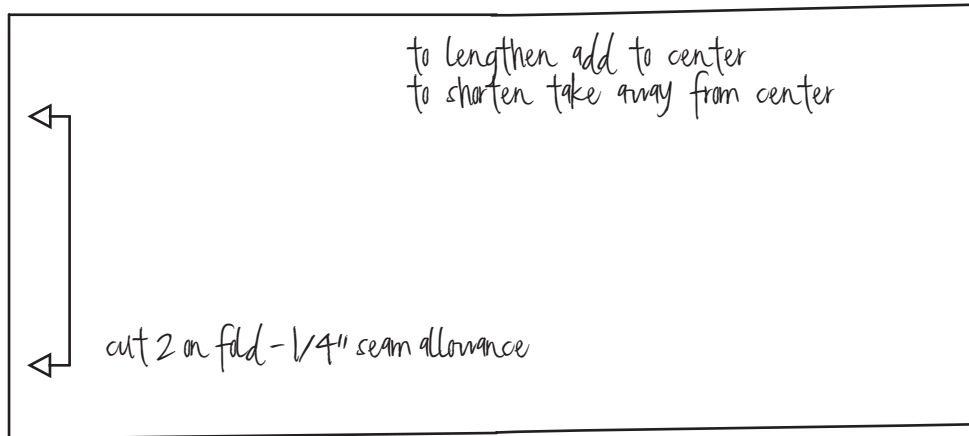 to lengthen add to center
to shorten take away from center
cut 2 on fold - 1/4" seam allowance